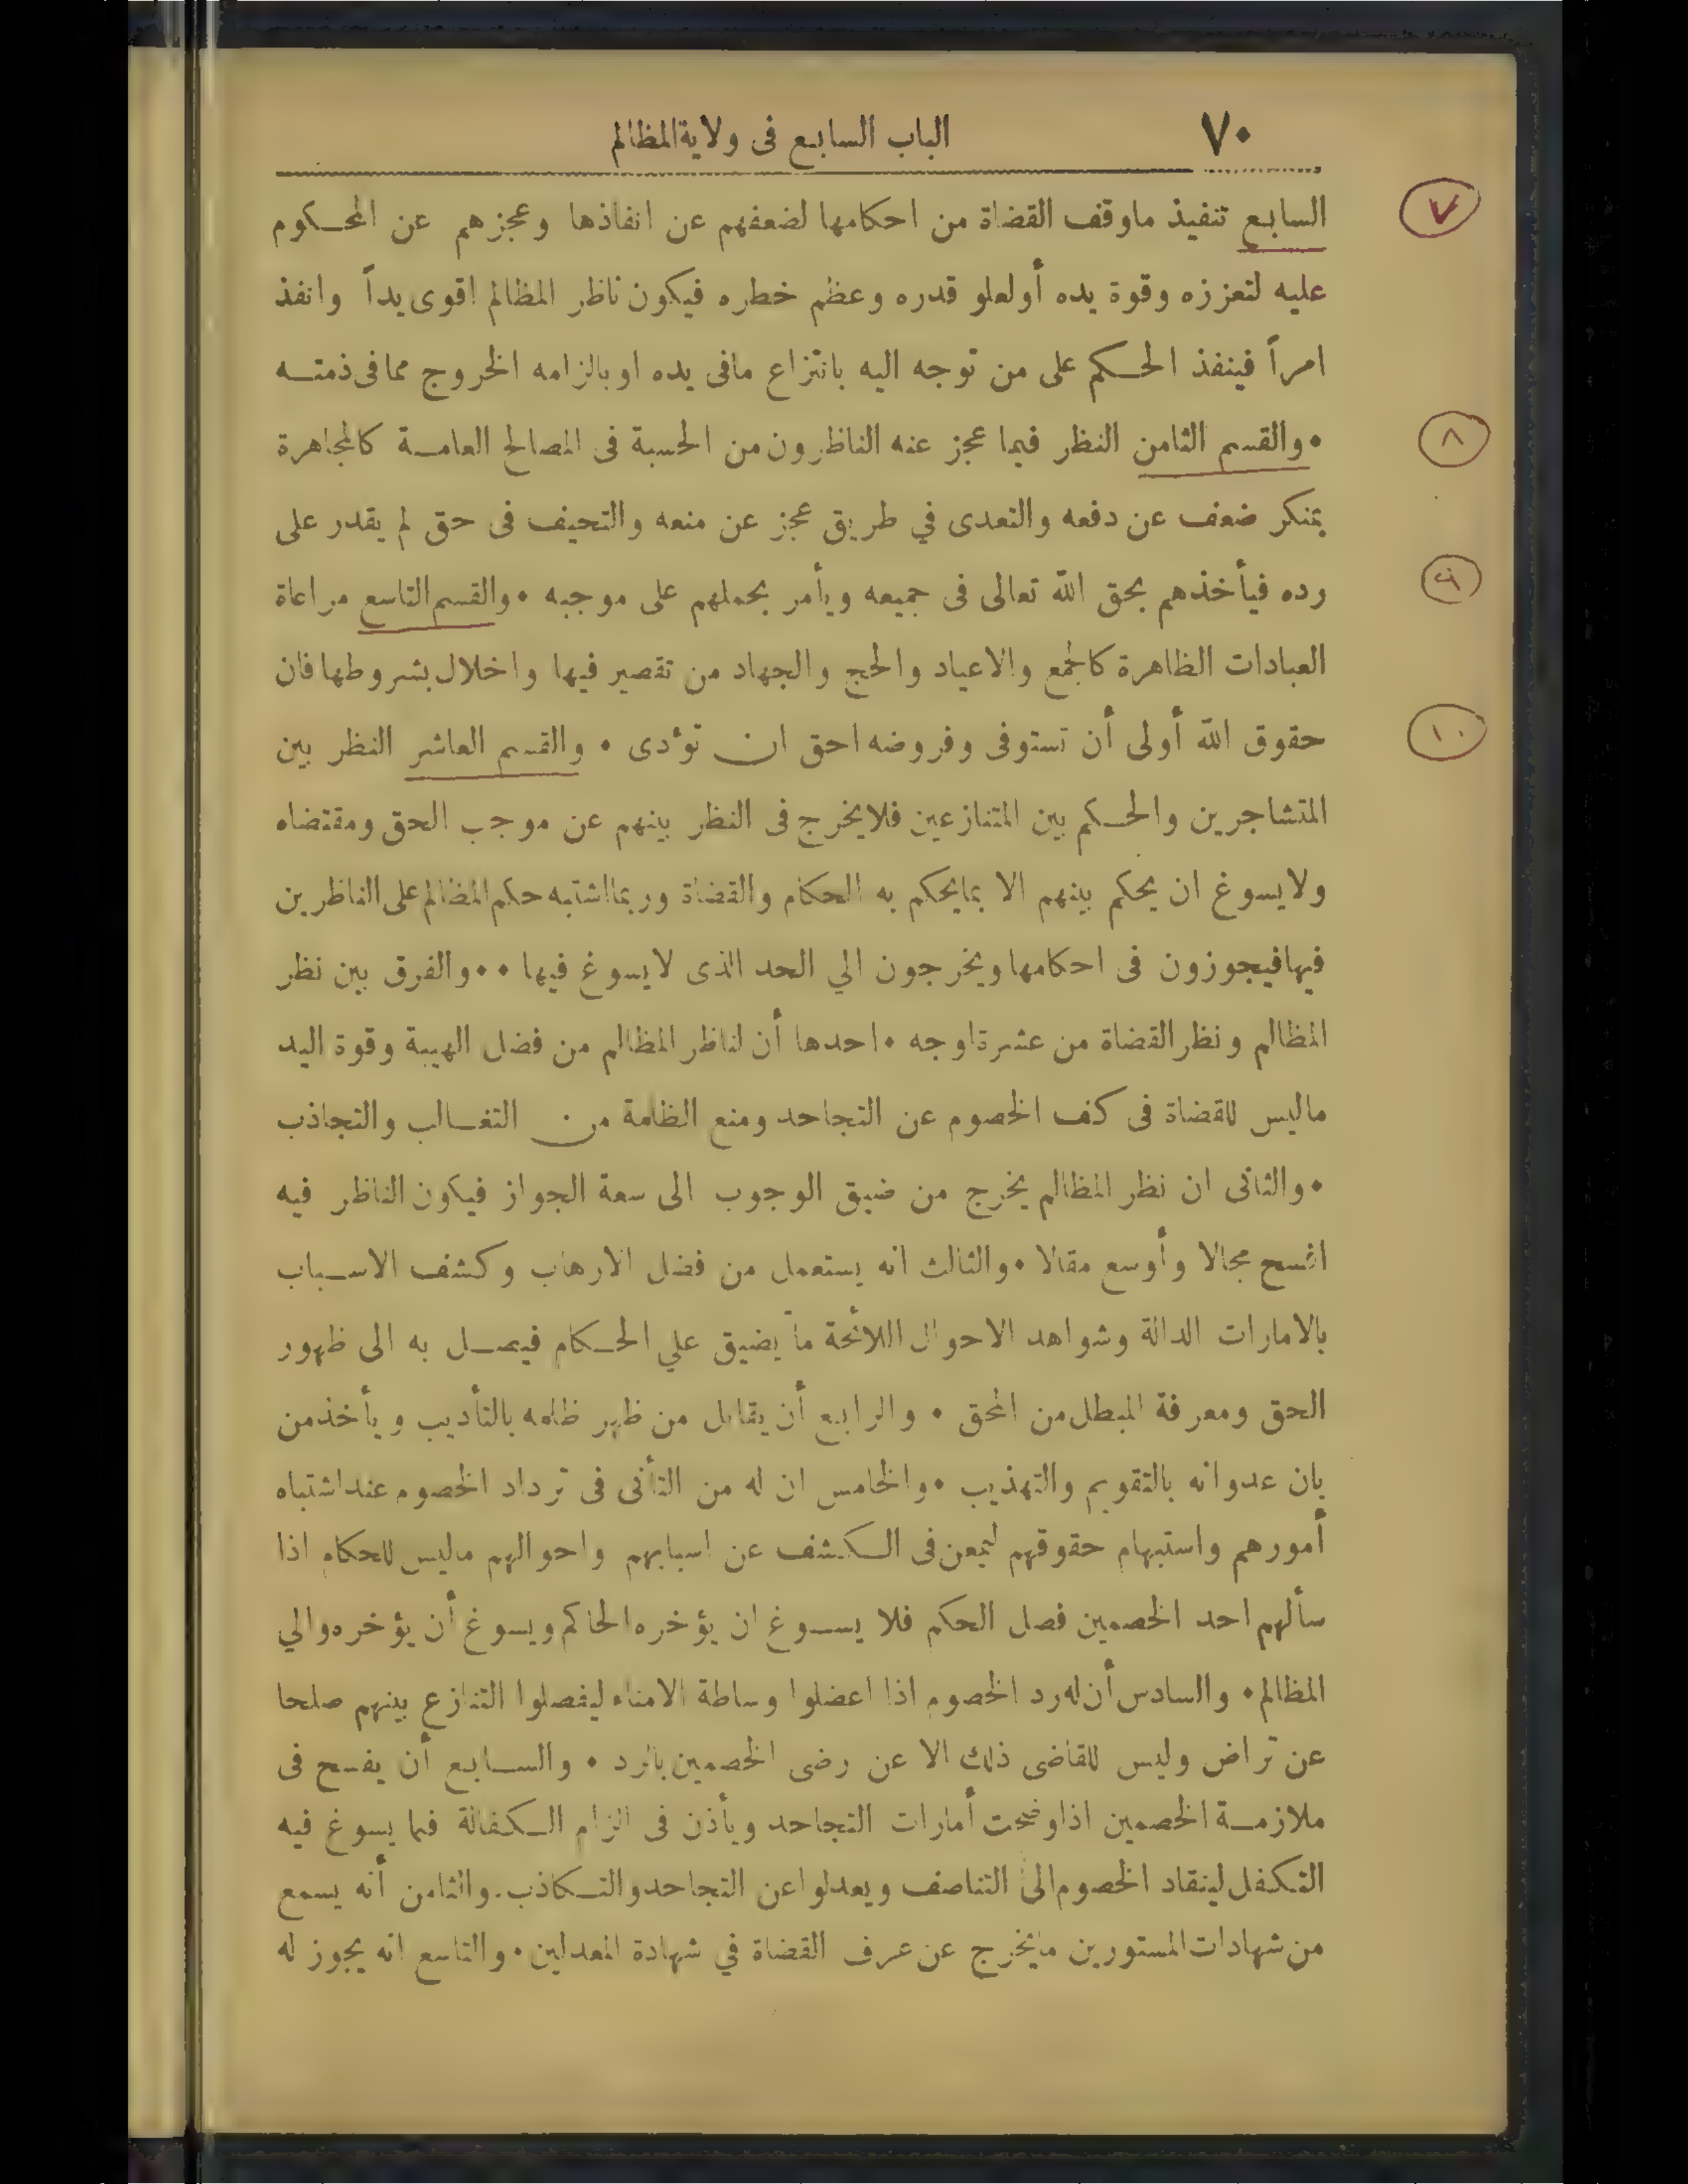 ٧٠ الباب السابع فى ولاية المظالم
٧ السابع تنفيذ ماوقف القضاة من احكامها لضعفهم عن انفاذها وعجزهم عن المحكوم
عليه لتعززه وقوة يده أولعلو قدره وعظم خطره فيكون ناظر المظالم اقوى يداً وانفذ
امراً فينفذ الحكم على من توجه اليه بانتزاع مافى يده او بالزامه الخروج مما فى ذمته
٨ • والقسم الثامن النظر فيما عجز عنه الناظرون من الحسبة فى المصالح العامة كالمجاهرة
بمنكر ضعف عن دفعه والتعدى في طريق عجز عن منعه والتحيف فى حق لم يقدر على
٩ رده فيأخذهم بحق الله تعالى فى جميعه ويأمر بحملهم على موجبه • والقسم التاسع مراعاة
العبادات الظاهرة كالجمع والاعياد والحج والجهاد من تقصير فيها واخلال بشروطها فان
١٠ حقوق الله أولى أن تستوفى وفروضه احق ان تؤدى • والقسم العاشر النظر بين
المتشاجرين والحكم بين المتنازعين فلا يخرج فى النظر بينهم عن موجب الحق ومقتضاه
ولا يسوغ ان يحكم بينهم الا بمايحكم به الحكام والقضاة وربمااشتبه حكم المظالم على الناظرين
فيهافيجوزون فى احكامها ويخرجون الي الحد الذى لا يسوغ فيها • • والفرق بين نظر
المظالم ونظر القضاة من عشرة اوجه • احدها أن لناظر المظالم من فضل الهيبة وقوة اليد
ماليس للقضاة فى كف الخصوم عن التجاحد ومنع الظلمة من التغالب والتجاذب
• والثانى ان نظر المظالم يخرج من ضيق الوجوب الى سعة الجواز فيكون الناظر فيه
افسح مجالا وأوسع مقالا • والثالث انه يستعمل من فضل الارهاب وكشف الاسباب
بالامارات الدالة وشواهد الاحوال اللائحة ما يضيق علي الحكام فيصل به الى ظهور
الحق ومعرفة المبطل من المحق • والرابع أن يقابل من ظهر ظلمه بالتأديب ويأخذ من
بان عدوانه بالتقويم والتهذيب • والخامس ان له من التأنى فى ترداد الخصوم عند اشتباه
أمورهم واستبهام حقوقهم ليمعن فى الكشف عن اسبابهم واحوالهم ماليس للحكام اذا
سألهم احد الخصمين فصل الحكم فلا يسوغ ان يؤخره الحاكم ويسوغ أن يؤخره والي
المظالم • والسادس أن له رد الخصوم اذا اعضلوا وساطة الامناء ليفصلوا التنازع بينهم صلحا
عن تراض وليس للقاضى ذلك الا عن رضى الخصمين بالرد • والسابع أن يفسح فى
ملازمة الخصمين اذا وضحت أمارات التجاحد ويأذن فى الزام الكفالة فيما يسوغ فيه
التكفل لينقاد الخصوم الى التناصف ويعدلوا عن التجاحد والتكاذب. والثامن أنه يسمع
من شهادات المستورين مايخرج عن عرف القضاة في شهادة المعدلين • والتاسع انه يجوز له